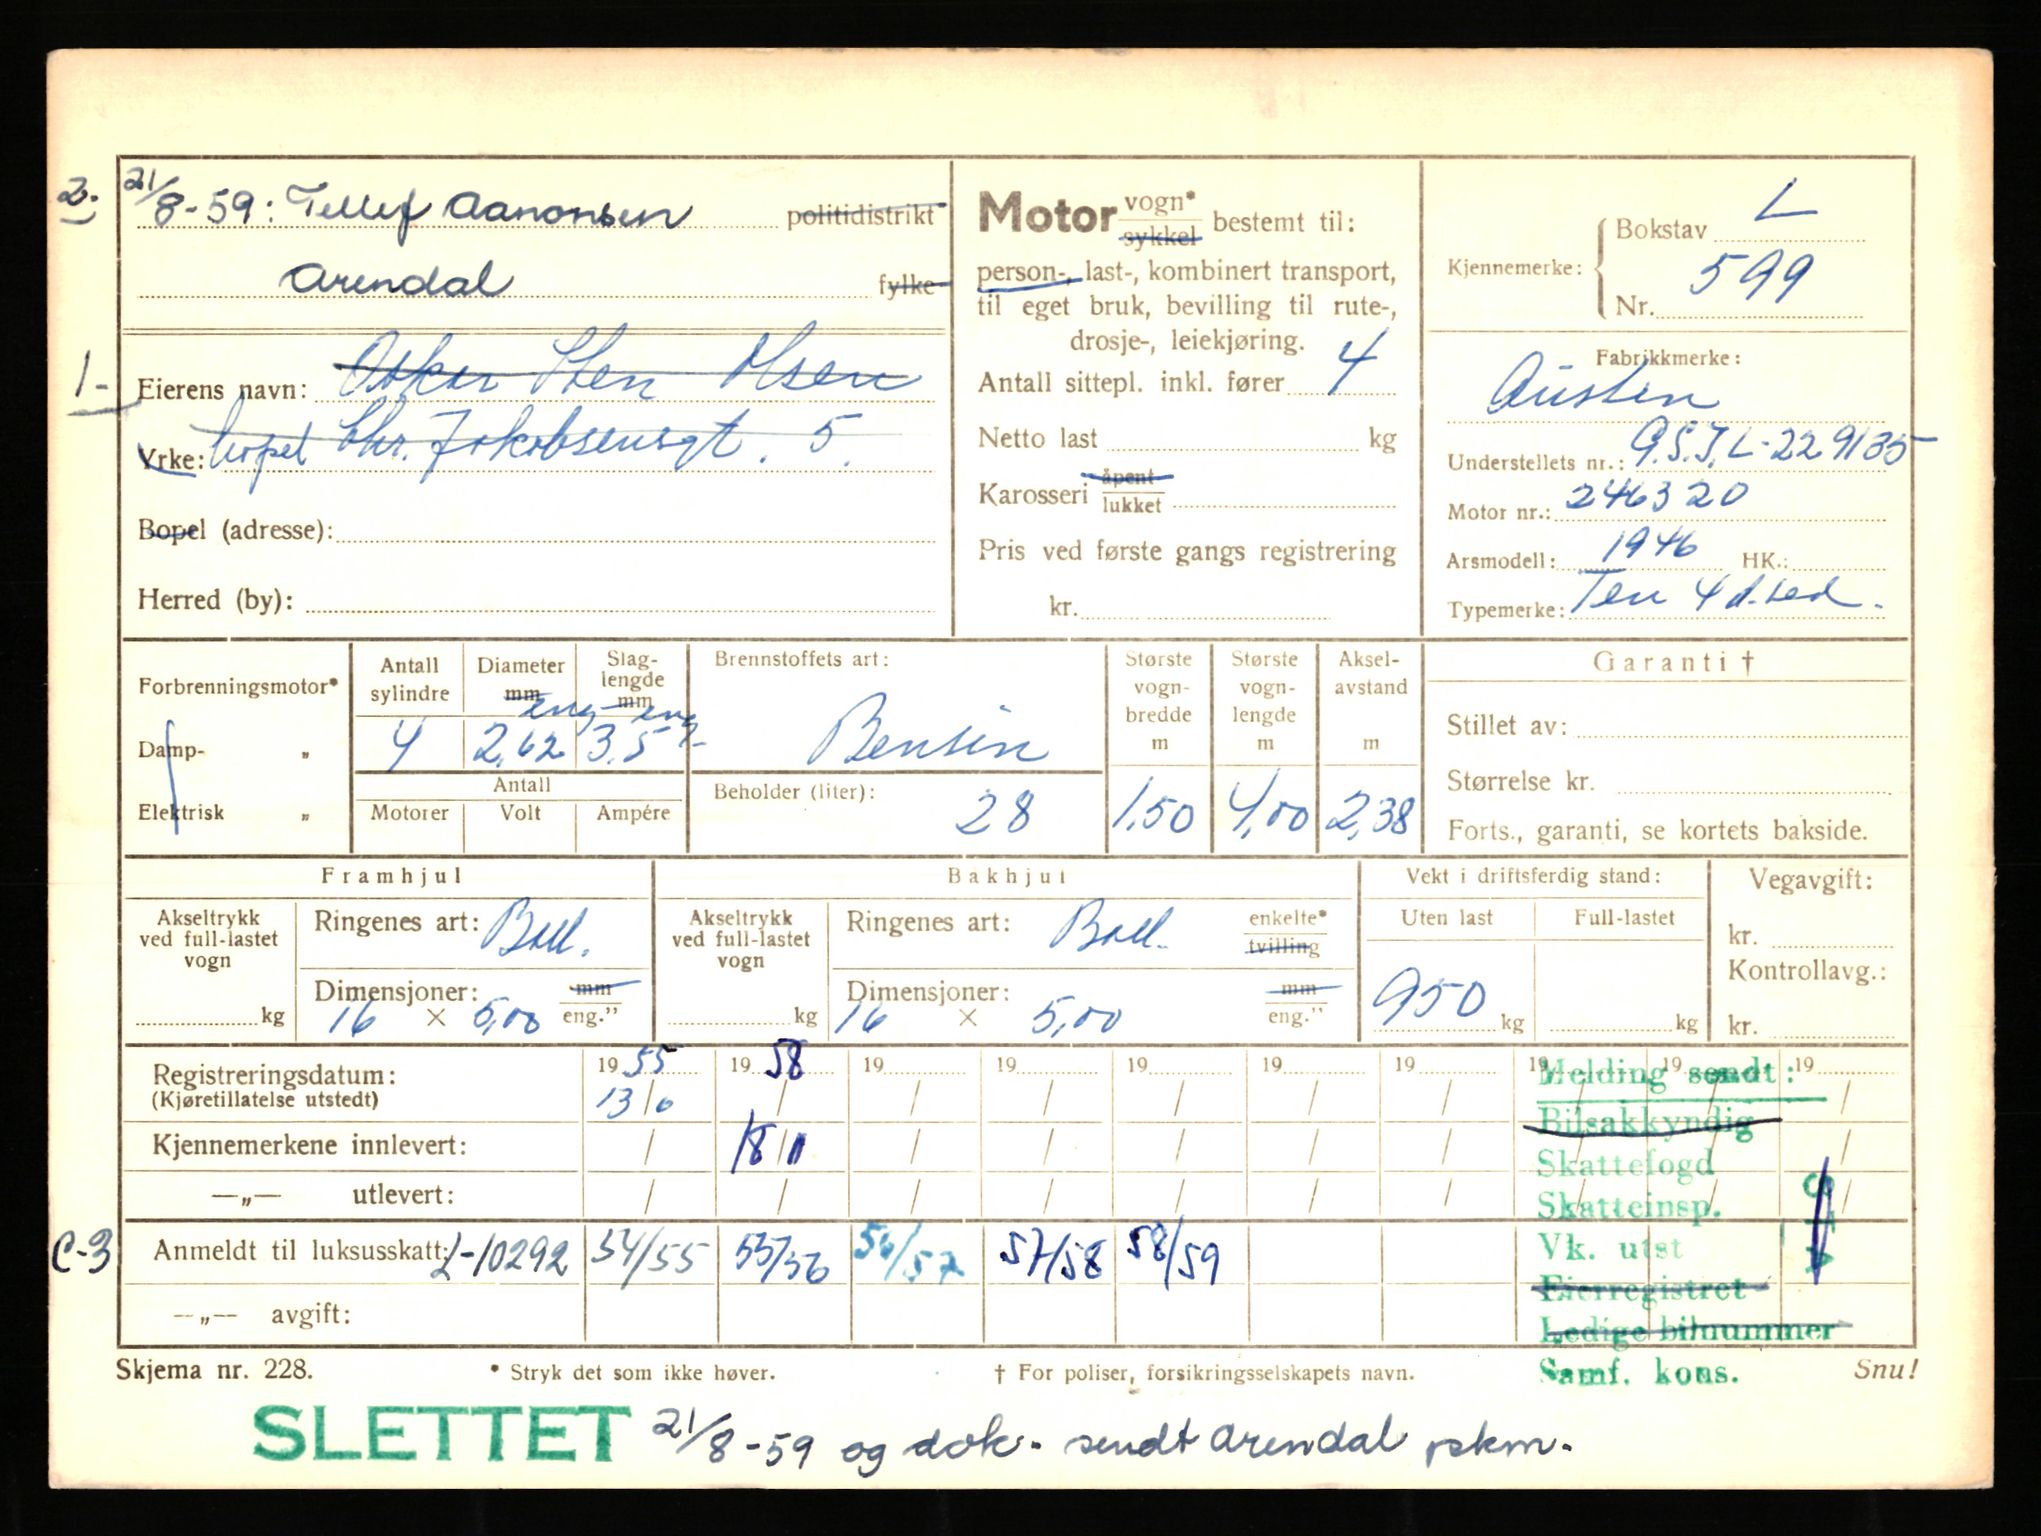 2. 21/8-59: Tellef Aanonsen politidistrikt
Arendal fylke
1- Eierens navn: Oskar Sten Olsen
Yrke: bopel Chr. Jakobsensgt. 5.
Bopel (adresse):
Herred (by):
Motor vogn* sykkel bestemt til:
person-, last-, kombinert transport,
til eget bruk, bevilling til rute-,
drosje-, leiekjøring.
Antall sittepl. inkl. fører 4
Netto last kg
Karosseri åpent lukket
Pris ved første gangs registrering
kr.
Kjennemerke: Bokstav L
Nr. 599
Fabrikkmerke:
Austen
Understellets nr.: G.S.J.L-229135
Motor nr.: 246320
Arsmodell: 1946 HK.:
Typemerke: Ten 4 d. sed.
Forbrenningsmotor*
Damp- „
Elektrisk „
Antall sylindre 4
Diameter mm eng 2,62
Slag-lengde mm eng 3,5
Antall
Motorer Volt Ampére
Brennstoffets art:
Bensin
Beholder (liter): 28
Største vogn-bredde m 1,50
Største vogn-lengde m 4,00
Aksel-avstand m 2,38
Garanti †
Stillet av:
Størrelse kr.
Forts., garanti, se kortets bakside.
Framhjul
Akseltrykk ved full-lastet vogn kg
Ringenes art: Ball.
Dimensjoner: mm
16 × 5,00 eng."
Bakhjul
Akseltrykk ved full-lastet vogn kg
Ringenes art: Ball. enkelte* tvilling
Dimensjoner: mm
16 × 5,00 eng."
Vekt i driftsferdig stand:
Uten last Full-lastet
950 kg kg
Vegavgift:
kr.
Kontrollavg.:
kr.
Registreringsdatum: 1955 1958 19 19 19 19 19 19 19 19
(Kjøretillatelse utstedt) 13/6 / / / / / / / / /
Kjennemerkene innlevert: / 18/11 / / / / /
—„— utlevert: / / / / / / /
C-3 Anmeldt til luksusskatt: L-10292 54/55 55/56 56/57 57/58 58/59
—„— avgift:
Melding sendt:
Bilsakkyndig
Skattefogd
Skatteinsp.
Vk. utst
Eierregistret
Ledige bilnummer
Samf. kons.
Skjema nr. 228. * Stryk det som ikke høver. † For poliser, forsikringsselskapets navn. Snu!
SLETTET 21/8-59 og dok. sendt Arendal pskm.